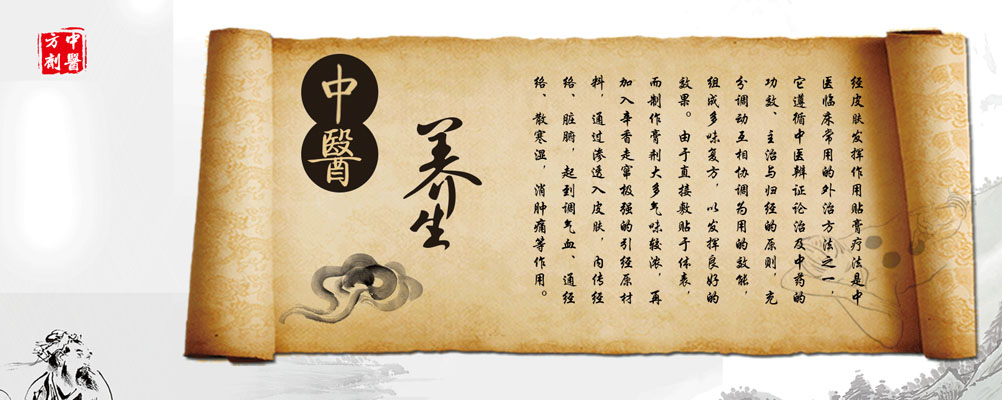 中醫
方劑
中醫
养生
经皮肤发挥作用贴膏疗法是中
医临床常用的外治方法之一，
它遵循中医辩证论治及中药的
功效、主治与归经的原则，充
分调动互相协调为用的效能，
组成多味复方，以发挥良好的
效果。由于直接敷贴于体表，
而制作膏剂大多气味较浓，再
加入辛香走窜极强的引经原材
料，通过渗透入皮肤，内传经
络、脏腑，起到调气血、通经
络、散寒湿，消肿痛等作用。